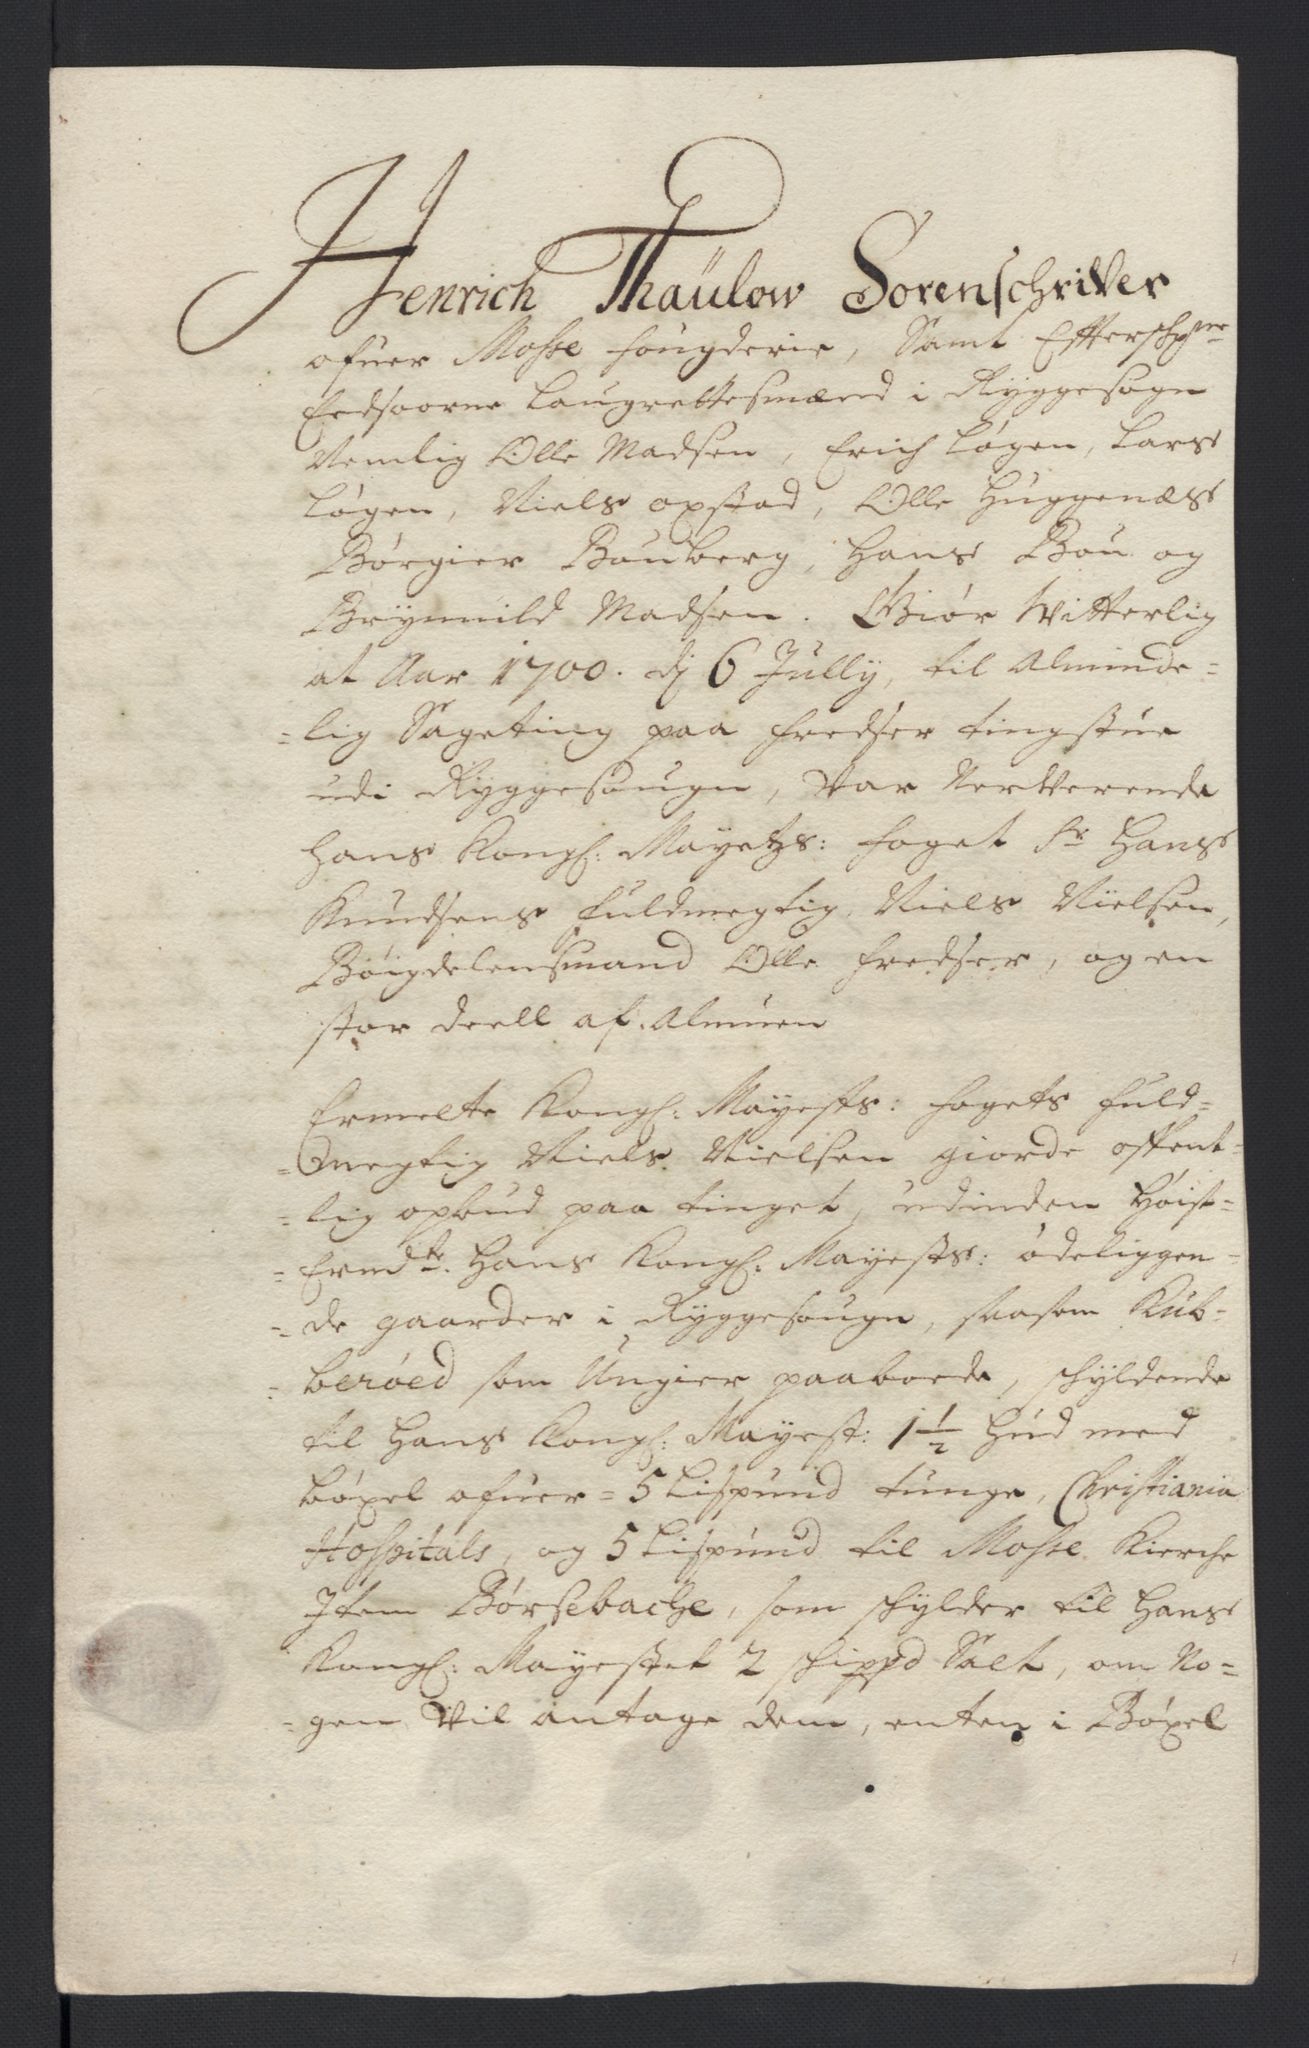 Henrich Thaülow Sorenschriver
ofuer Mosse fougderie, Samt Effterschr:ne
Eedsoorne Laugrettesmænd i Ryggesogn
Nemlig Olle Madsen, Erich Løgen, Lars
Løgen, Niels opstad, Olle Huggenæs
Børgier Bouberg, Hans Bou og
Brynnild Madsen. Giør Witterlig
at Aar 1700. dj 6 Jully, til Alminde=
=lig Sageting paa fredser tingstue
udi Ryggesougn, var Nerverende
Hans Kongl: Mayetzs: foget Sr Hans
Knudsens fuldmegtig, Niels Nielsen,
Böigdelensmand Olle fredser, og en
stor deell af Almuen
Ermelte Kongl: Mayests: fogets fuld=
=megtig Niels Nielsen giorde offent=
=lig opbud paa tinget, udinden Höist=
=Ermdte. Hans Kongl: Mayests: ödeliggen=
=de gaarder i Ryggesougn, saasom Kub=
=beröed som Ungier paaboede, schyldende
til Hans Kongl: Mayest: 1 1/2 Hud med
böxel ofuer = 5 Lispund tunge, Christiania
Hospitals, og 5 Lispund til Mosse Kierche
Item Börsebache, som schylder til Hans
Kongl: Mayestet 2 schippd Salt, om No=
=gen vil antage dem, enten i Böxel